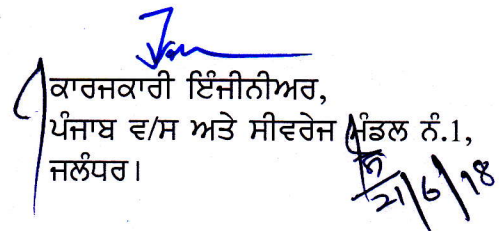 ਕਾਰਜਕਾਰੀ ਇੰਜੀਨੀਅਰ,
ਪੰਜਾਬ ਵ/ਸ ਅਤੇ ਸੀਵਰੇਜ ਮੰਡਲ ਨੰ.1,
ਜਲੰਧਰ।
21/6/18